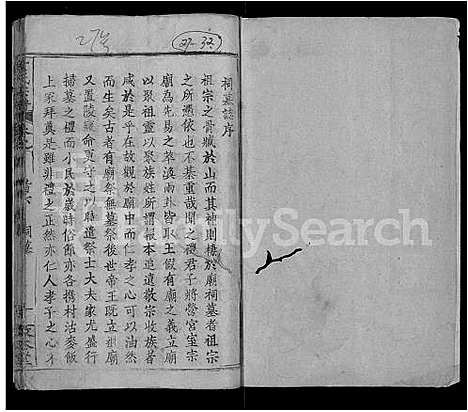 27号
27-32
祠墓誌序
祖宗之骨藏於山而其神則棲於廟祠墓者祖宗
之所憑依也不綦重哉聞之禮君子將營宮室宗
廟為先易之萃渙兩卦皆取王假有廟之義立廟
以聚祖靈以聚族姓所謂報本追遠敬宗收族者
咸於是乎在故觀於廟中而仁孝之心可以油然
而生矣古者有廟祭無墓祭後世帝王既立祖廟
又置陵寢命吏守之以時遣祭士大夫家尤盛行
掃墓之禮而小民於歲時俗節亦各携村沽麥飯
上家拜奠是雖非禮之正然亦仁人孝子之心不
祠墓
FamilySearch